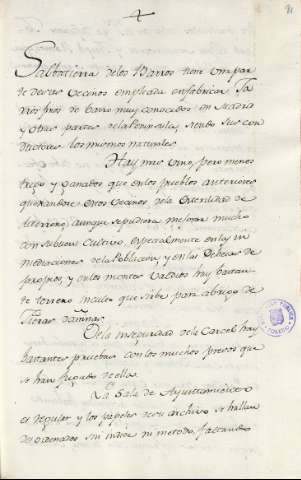 Salbatierra de los Barros tiene una par
te de sus vecinos empleada en fabricar Ja
rros finos de barro muy conocidos en
y otras partes de la Peninsula, siendo sus con
ductores los mismos naturales.
Hay mas vino, pero menos
trigo y ganados que en los pueblos anteriores
quexandose estos vecinos de la esterilidad de
su terreno, aunque se pudiera mejorar mucho
con su buen cultivo, especialmente en las in
mediaciones de la Poblacion, y en las Dehesas de
propios, y en los montes Valdios hay bastan
te terreno inculto que sirbe para abrigo de
fieras dañinas.
De la inseguridad de la Carcel hay
bastantes pruebas con los muchos presos que
se han fugado de ella.
La Sala de Ayuntamiento
es regular y los papeles de su archivo se hallan
desordenados sin indice ni metodo, faltando